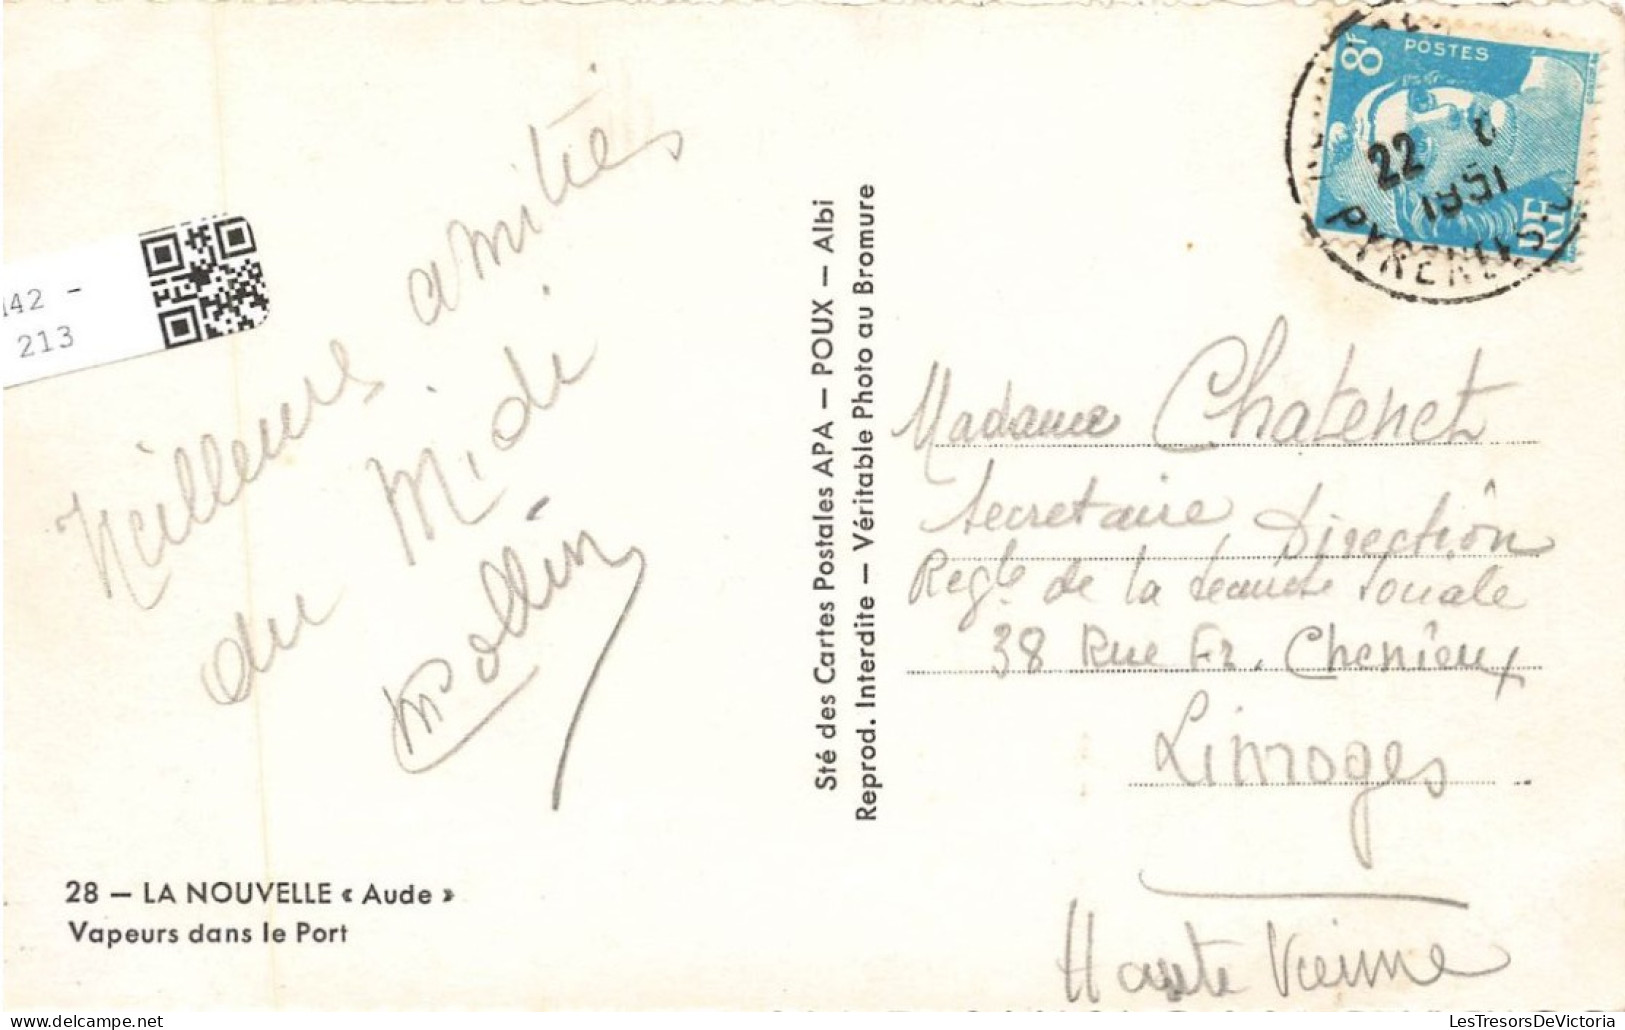 Meilleures amitiés
du Midi
Mollin
28 — LA NOUVELLE « Aude »
Vapeurs dans le Port
Sté des Cartes Postales APA — POUX — Albi
Reprod. Interdite — Véritable Photo au Bromure
8F
POSTES
RF
22
1951
PYRENEES
Madame Chatenet
Secretaire Direction
Regle de la Securité Sociale
38 Rue Fr. Chenieux
Limoges
Haute Vienne
142 -
213
LesTresorsDeVictoria